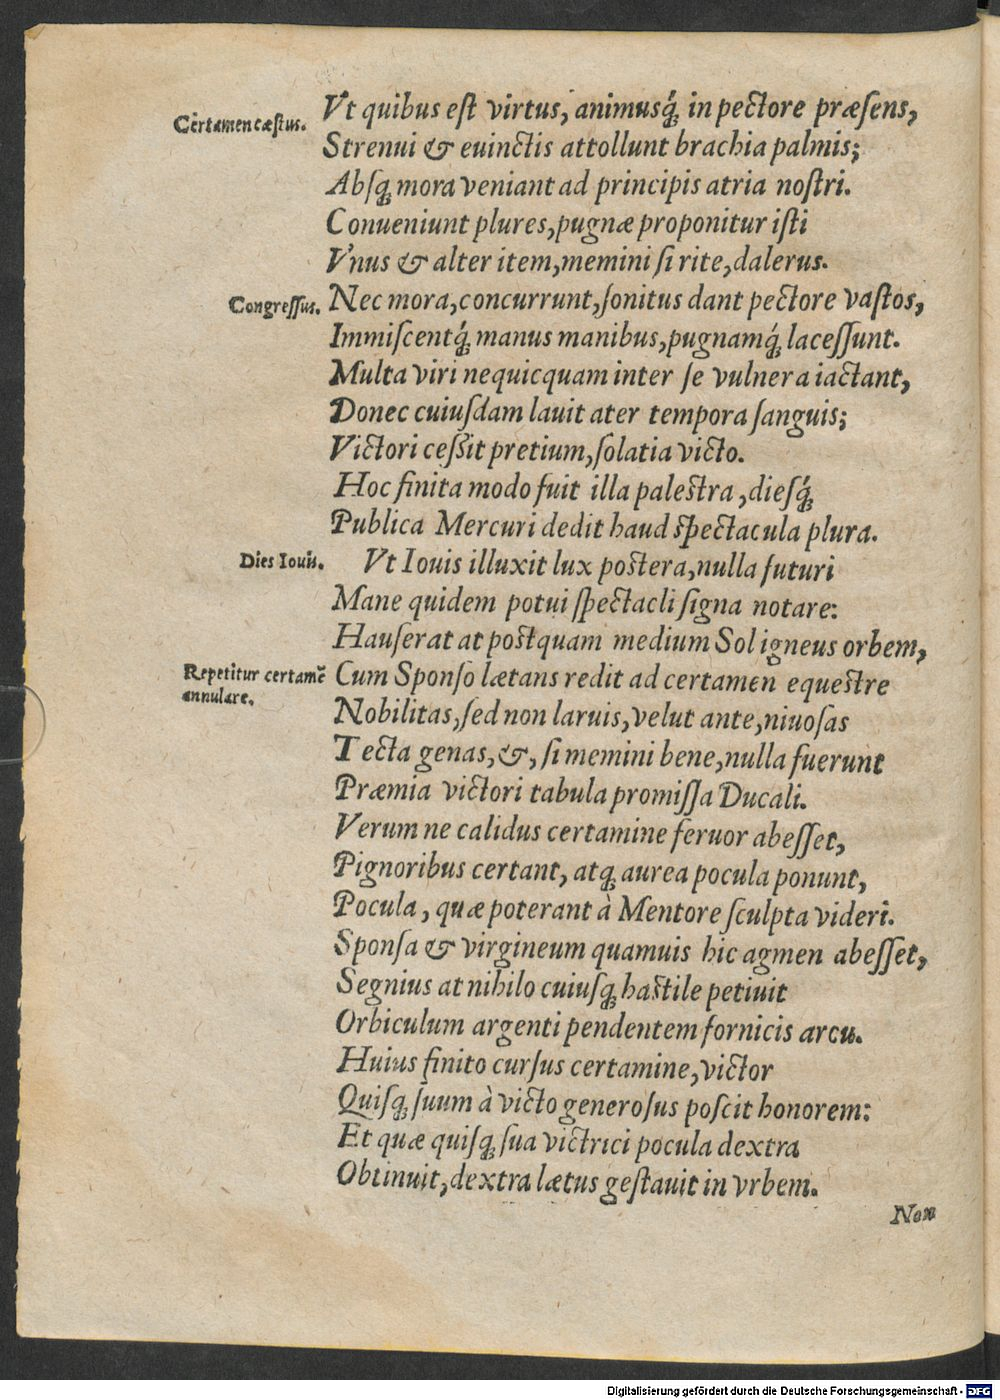 Certamen cæstus.
Vt quibus eſt virtus, animusq́ꝫ in pectore præſens,
Strenui & euinctis attollunt brachia palmis;
Abſqꝫ mora veniant ad principis atria noſtri.
Conueniunt plures, pugnæ proponitur iſti
Vnus & alter item, memini ſi rite, dalerus.
Congreſſus.
Nec mora, concurrunt, ſonitus dant pectore vaſtos,
Immiſcentq́ꝫ manus manibus, pugnamq́ꝫ laceſſunt.
Multa viri nequicquam inter ſe vulnera iactant,
Donec cuiuſdam lauit ater tempora ſanguis;
Victori ceſsit pretium, ſolatia victo.
Hoc finita modo fuit illa palestra, dieſq́ꝫ
Publica Mercuri dedit haud ſpectacula plura.
Dies Iouis.
Vt Iouis illuxit lux postera, nulla futuri
Mane quidem potui ſpectacli ſigna notare:
Hauſerat at postquam medium Sol igneus orbem,
Repetitur certamẽ
annulare.
Cum Sponſo lætans redit ad certamen equestre
Nobilitas, ſed non laruis, velut ante, niuoſas
Tecta genas, &, ſi memini bene, nulla fuerunt
Præmia victori tabula promiſſa Ducali.
Verum ne calidus certamine feruor abeſſet,
Pignoribus certant, atqꝫ aurea pocula ponunt,
Pocula, quæ poterant à Mentore ſculpta videri.
Sponſa & virgineum quamuis hic agmen abeſſet,
Segnius at nihilo cuiuſqꝫ hastile petiuit
Orbiculum argenti pendentem fornicis arcu.
Huius finito curſus certamine, victor
Quiſqꝫ ſuum à victo generoſus poſcit honorem:
Et quæ quiſqꝫ ſua victrici pocula dextra
Obtinuit, dextra lætus geſtauit in vrbem.
Non
Digitalisierung gefördert durch die Deutsche Forschungsgemeinschaft - DFG